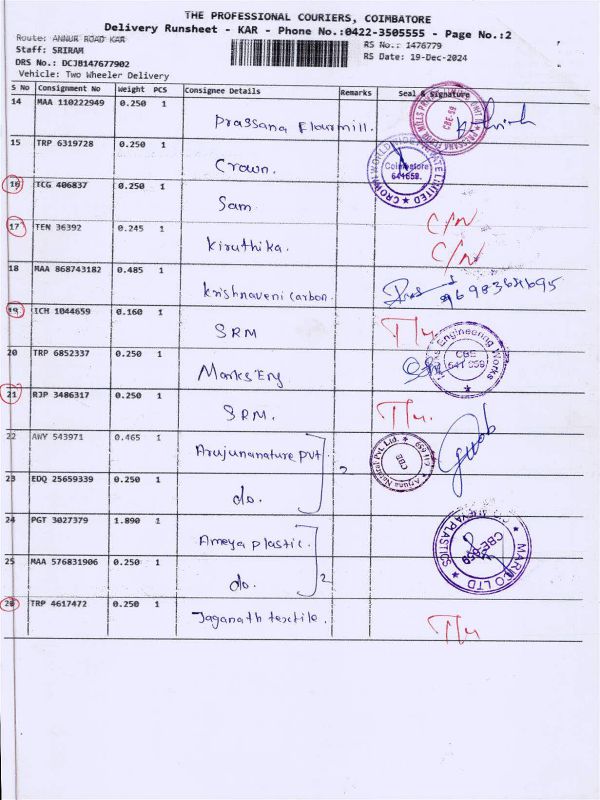 THE PROFESSIONAL COURIERS, COIMBATORE
Delivery Runsheet - KAR - Phone No.:0422-3505555 - Page No.:2
Route: ANNUR ROAD KAR
RS No.: 1476779
Staff: SRIRAM
RS Date: 19-Dec-2024
DRS No.: DCJB147677902
Vehicle: Two Wheeler Delivery
S No Consignment No Weight PCS Consignee Details Remarks Seal & Signature
14 MAA 110222949 0.250 1
Prassana Flourmill.
CBE-59
15 TRP 6319728 0.250 1
Crown.
CROWN WORLD PRIVATE LIMITED
Coimbatore
641659.
16 TCG 406837 0.250 1
Sam
C/N
17 TEN 36392 0.245 1
Kiruthika.
C/N
18 MAA 868743182 0.485 1
Krishnaveni carbon.
19 ICH 1044659 0.160 1
SRM
20 TRP 6852337 0.250 1
Marks Eng
Engineering Works
CBE
641 659
21 RJP 3486317 0.250 1
SRM.
22 AWY 543971 0.465 1
Arujunanature pvt
Arjuna Natural Pvt. Ltd.
CBE
641 659
23 EDQ 25659339 0.250 1
do.
2
24 PGT 3027379 1.890 1
Ameya plastic.
AMEYA PLASTICS
CBE-659
25 MAA 576831906 0.250 1
do.
2
26 TRP 4617472 0.250 1
Jaganath textile.